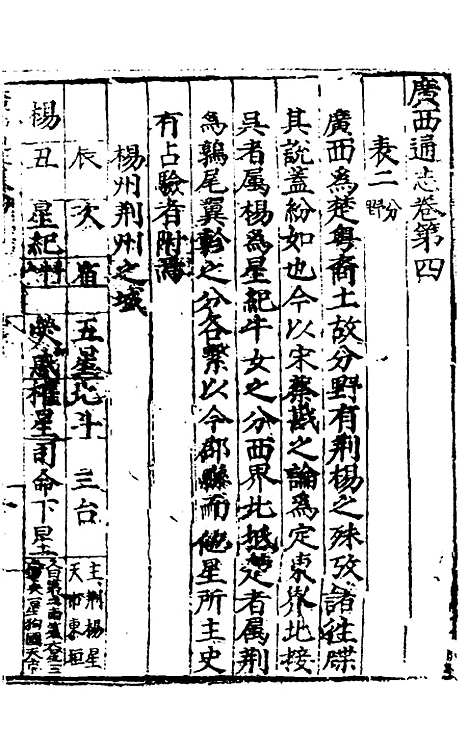 廣西通志卷第四
表二 分野
廣西為楚粤裔土故分野有荆楊之殊攷諸往牒
其說蓋紛如也今以宋蔡戡之論為定東界地接
吳者属楊為星紀牛女之分西界北抵楚者属荆
為鶉尾翼軫之分各繫以今郡縣而他星所主史
有占驗者附焉
楊州荆州之域
辰 次 宿 五星 北斗 三台 主荆楊星 天市東垣
楊 丑 星紀 斗牛 熒惑 權星 司命下星